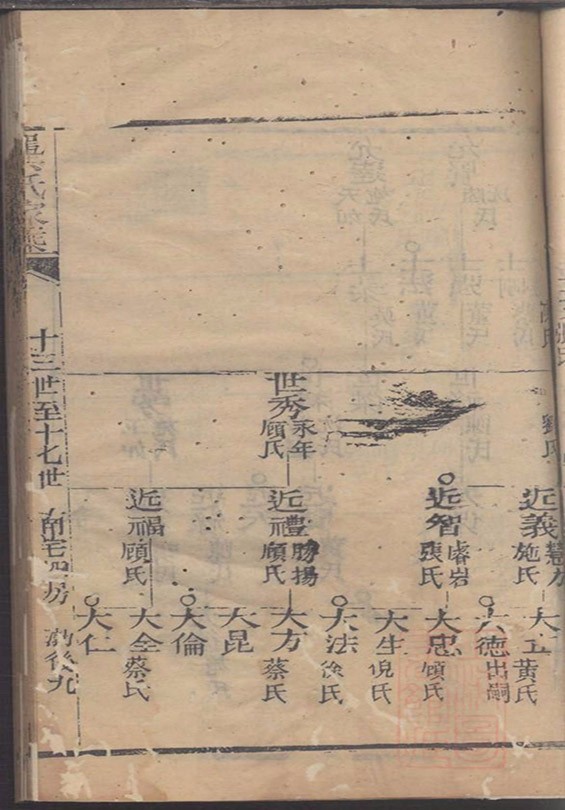 劉氏
世秀 永年 顧氏
近義 施氏
近智 睿岩 張氏
近禮 勝揚 顧氏
近福 顧氏
大五 黃氏
大德 出嗣
大忠 顧氏
大生 倪氏
大法 徐氏
大方 蔡氏
大昆
大倫
大全 蔡氏
大仁
氏家乘
十三世至十七世
南宅四房
九